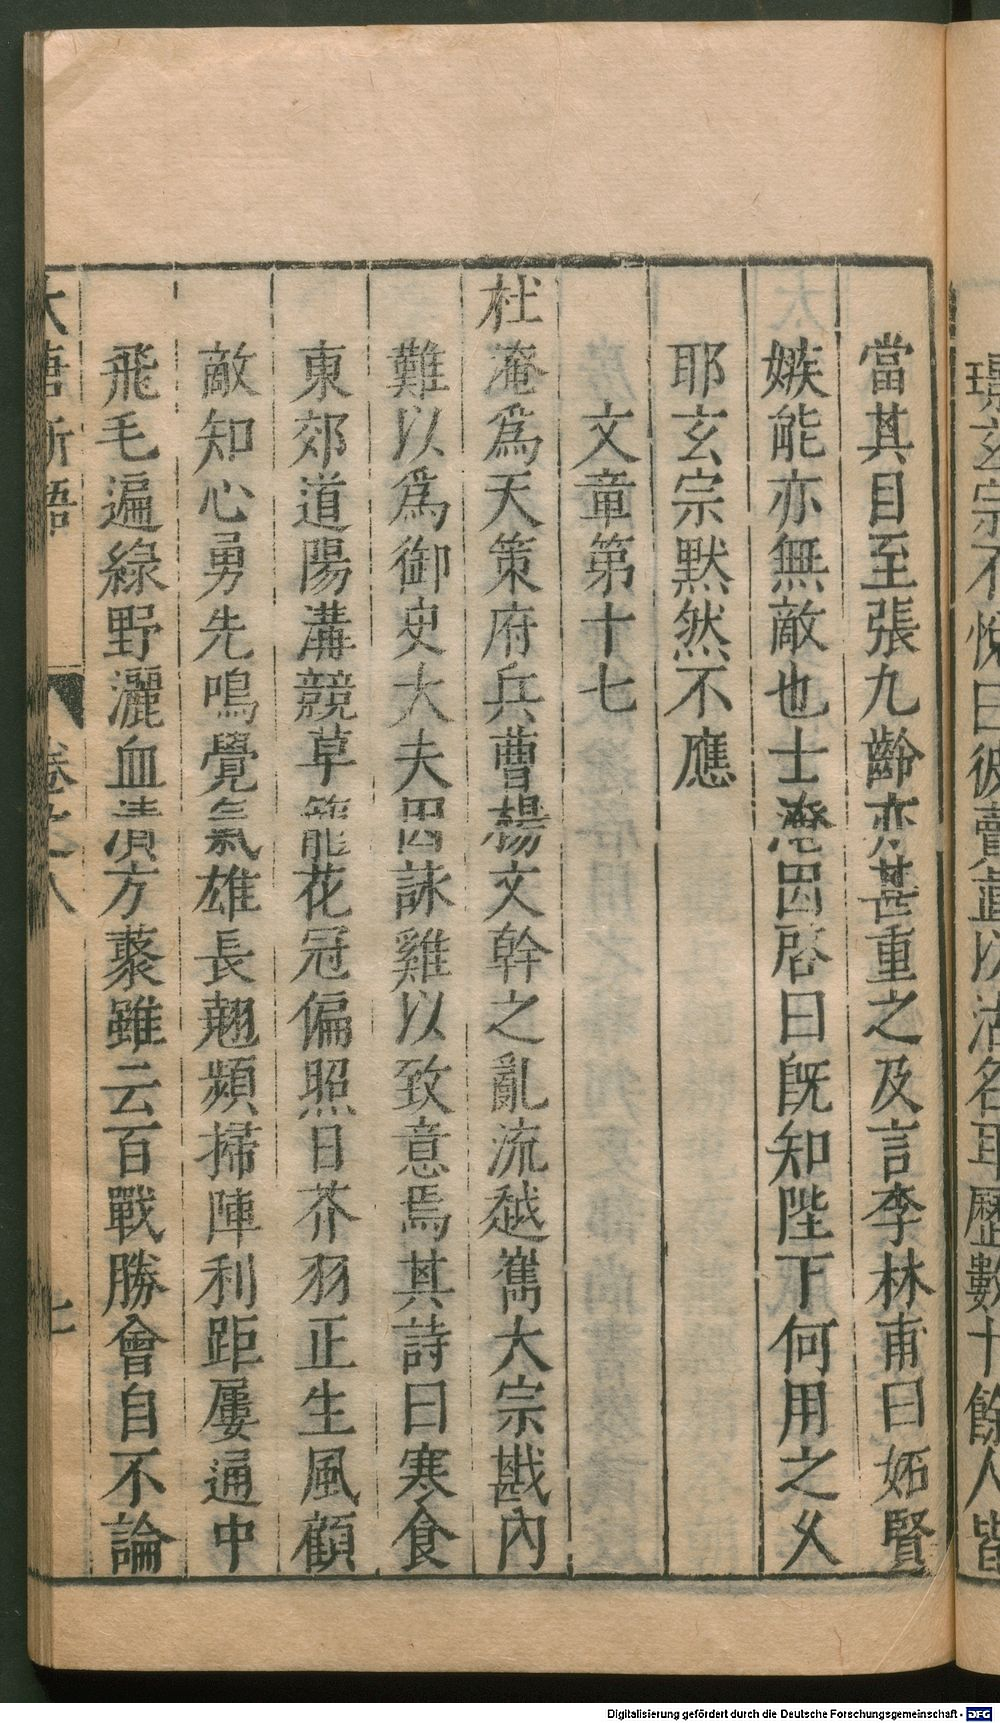 璟玄宗不悅曰彼賣直以沽名耳歷數十餘人皆
當其目至張九齡亦甚重之及言李林甫曰妬賢
嫉能亦無敵也士淹因啓曰旣知陛下何用之乆
耶玄宗默然不應
文章第十七
杜淹爲天策府兵曹楊文幹之亂流越巂大宗戡內
難以爲御史大夫因詠雞以致意焉其詩曰寒食
東郊道陽溝競草籠花冠偏照日芥羽正生風顧
敵知心勇先鳴覺氣雄長翹頻掃陣利距屢通中
飛毛遍綠野灑血漬方藂雖云百戰勝會自不論
大唐新語 卷之八 七
Digitalisierung gefördert durch die Deutsche Forschungsgemeinschaft - DFG